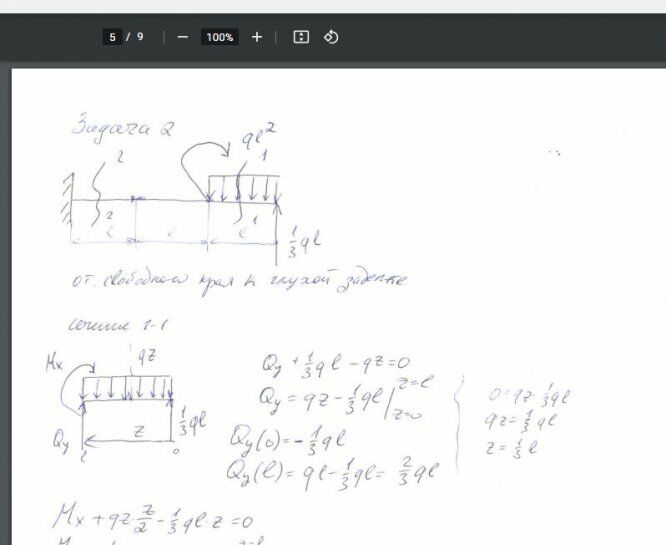 5 / 9 — 100% +
Задача 2
ql²
2
1
2
1
l l l
1/3 ql
от свободного края к глухой заделке
сечение 1-1
Mx
qz
Qy
z
1/3 ql
l
0
Qy + 1/3 ql - qz = 0
Qy = qz - 1/3 ql | z=l z=0
Qy(0) = - 1/3 ql
Qy(l) = ql - 1/3 ql = 2/3 ql
0 = qz - 1/3 ql
qz = 1/3 ql
z = 1/3 l
Mx + qz · z/2 - 1/3 ql · z = 0